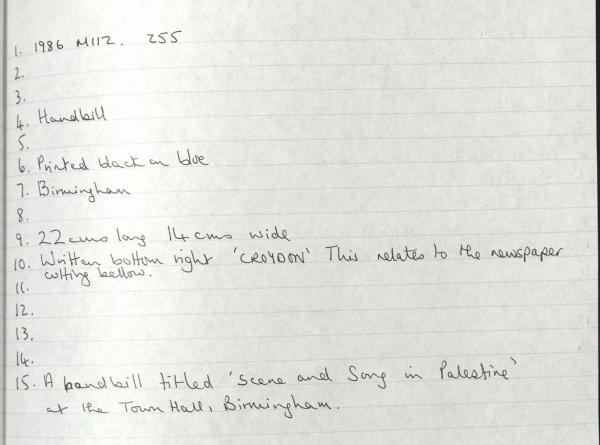 1. 1986 M112. 255
2.
3.
4. Handbill
5.
6. Printed black on blue
7. Birmingham
8.
9. 22cms long 14cms wide
10. Written bottom right 'CROYDON' This relates to the newspaper
cutting bellow.
11.
12.
13.
14.
15. A handbill titled 'Scene and Song in Palestine'
at the Town Hall, Birmingham.